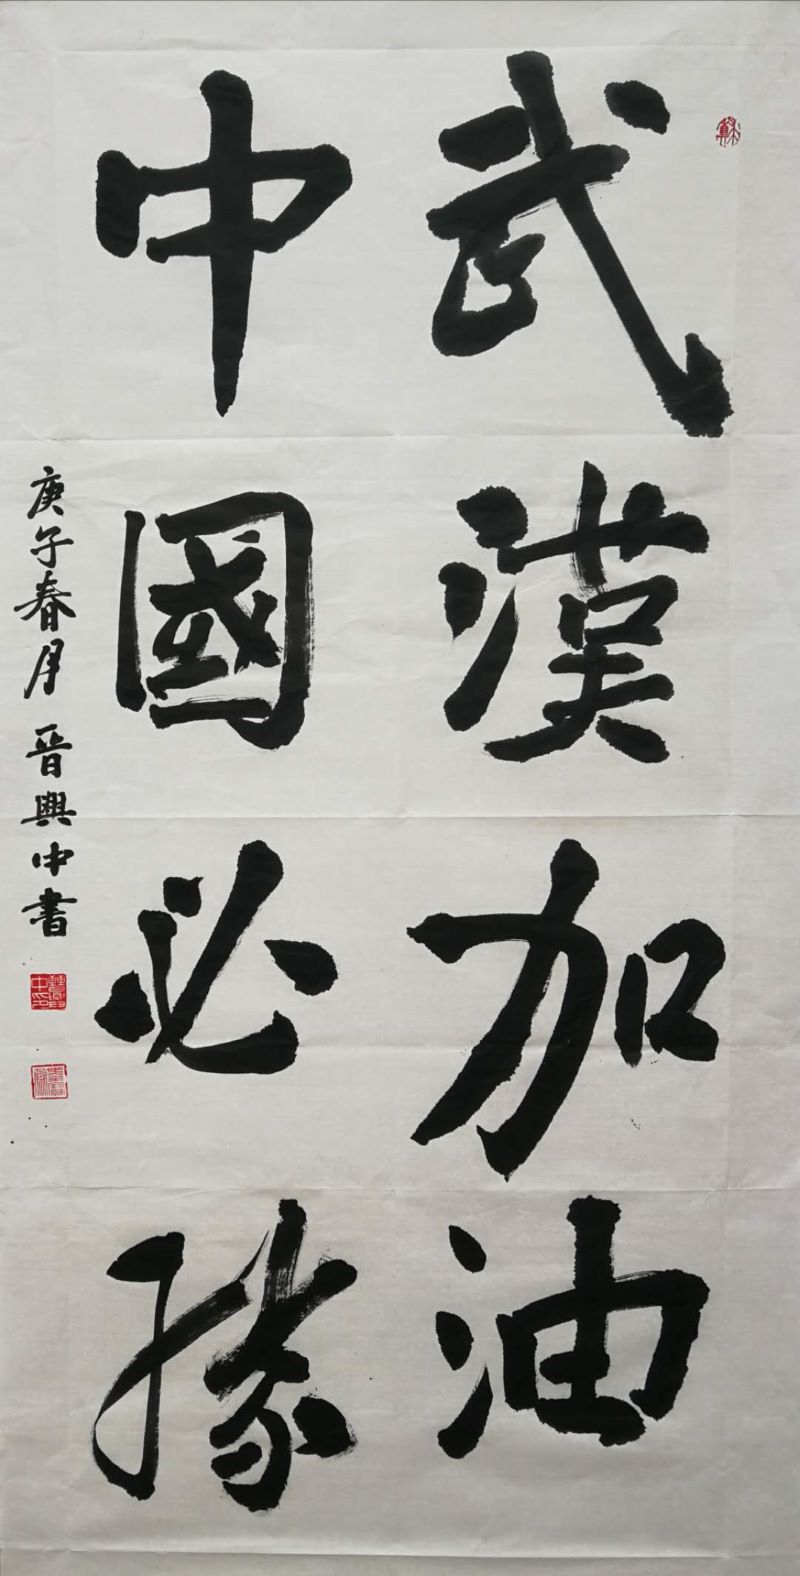 武漢加油
中國必勝
庚子春月 晉興中書